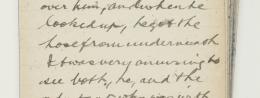 over him, and when he
looked up, he got the
hose from underneath
It was very amusing to
see both, he, and the